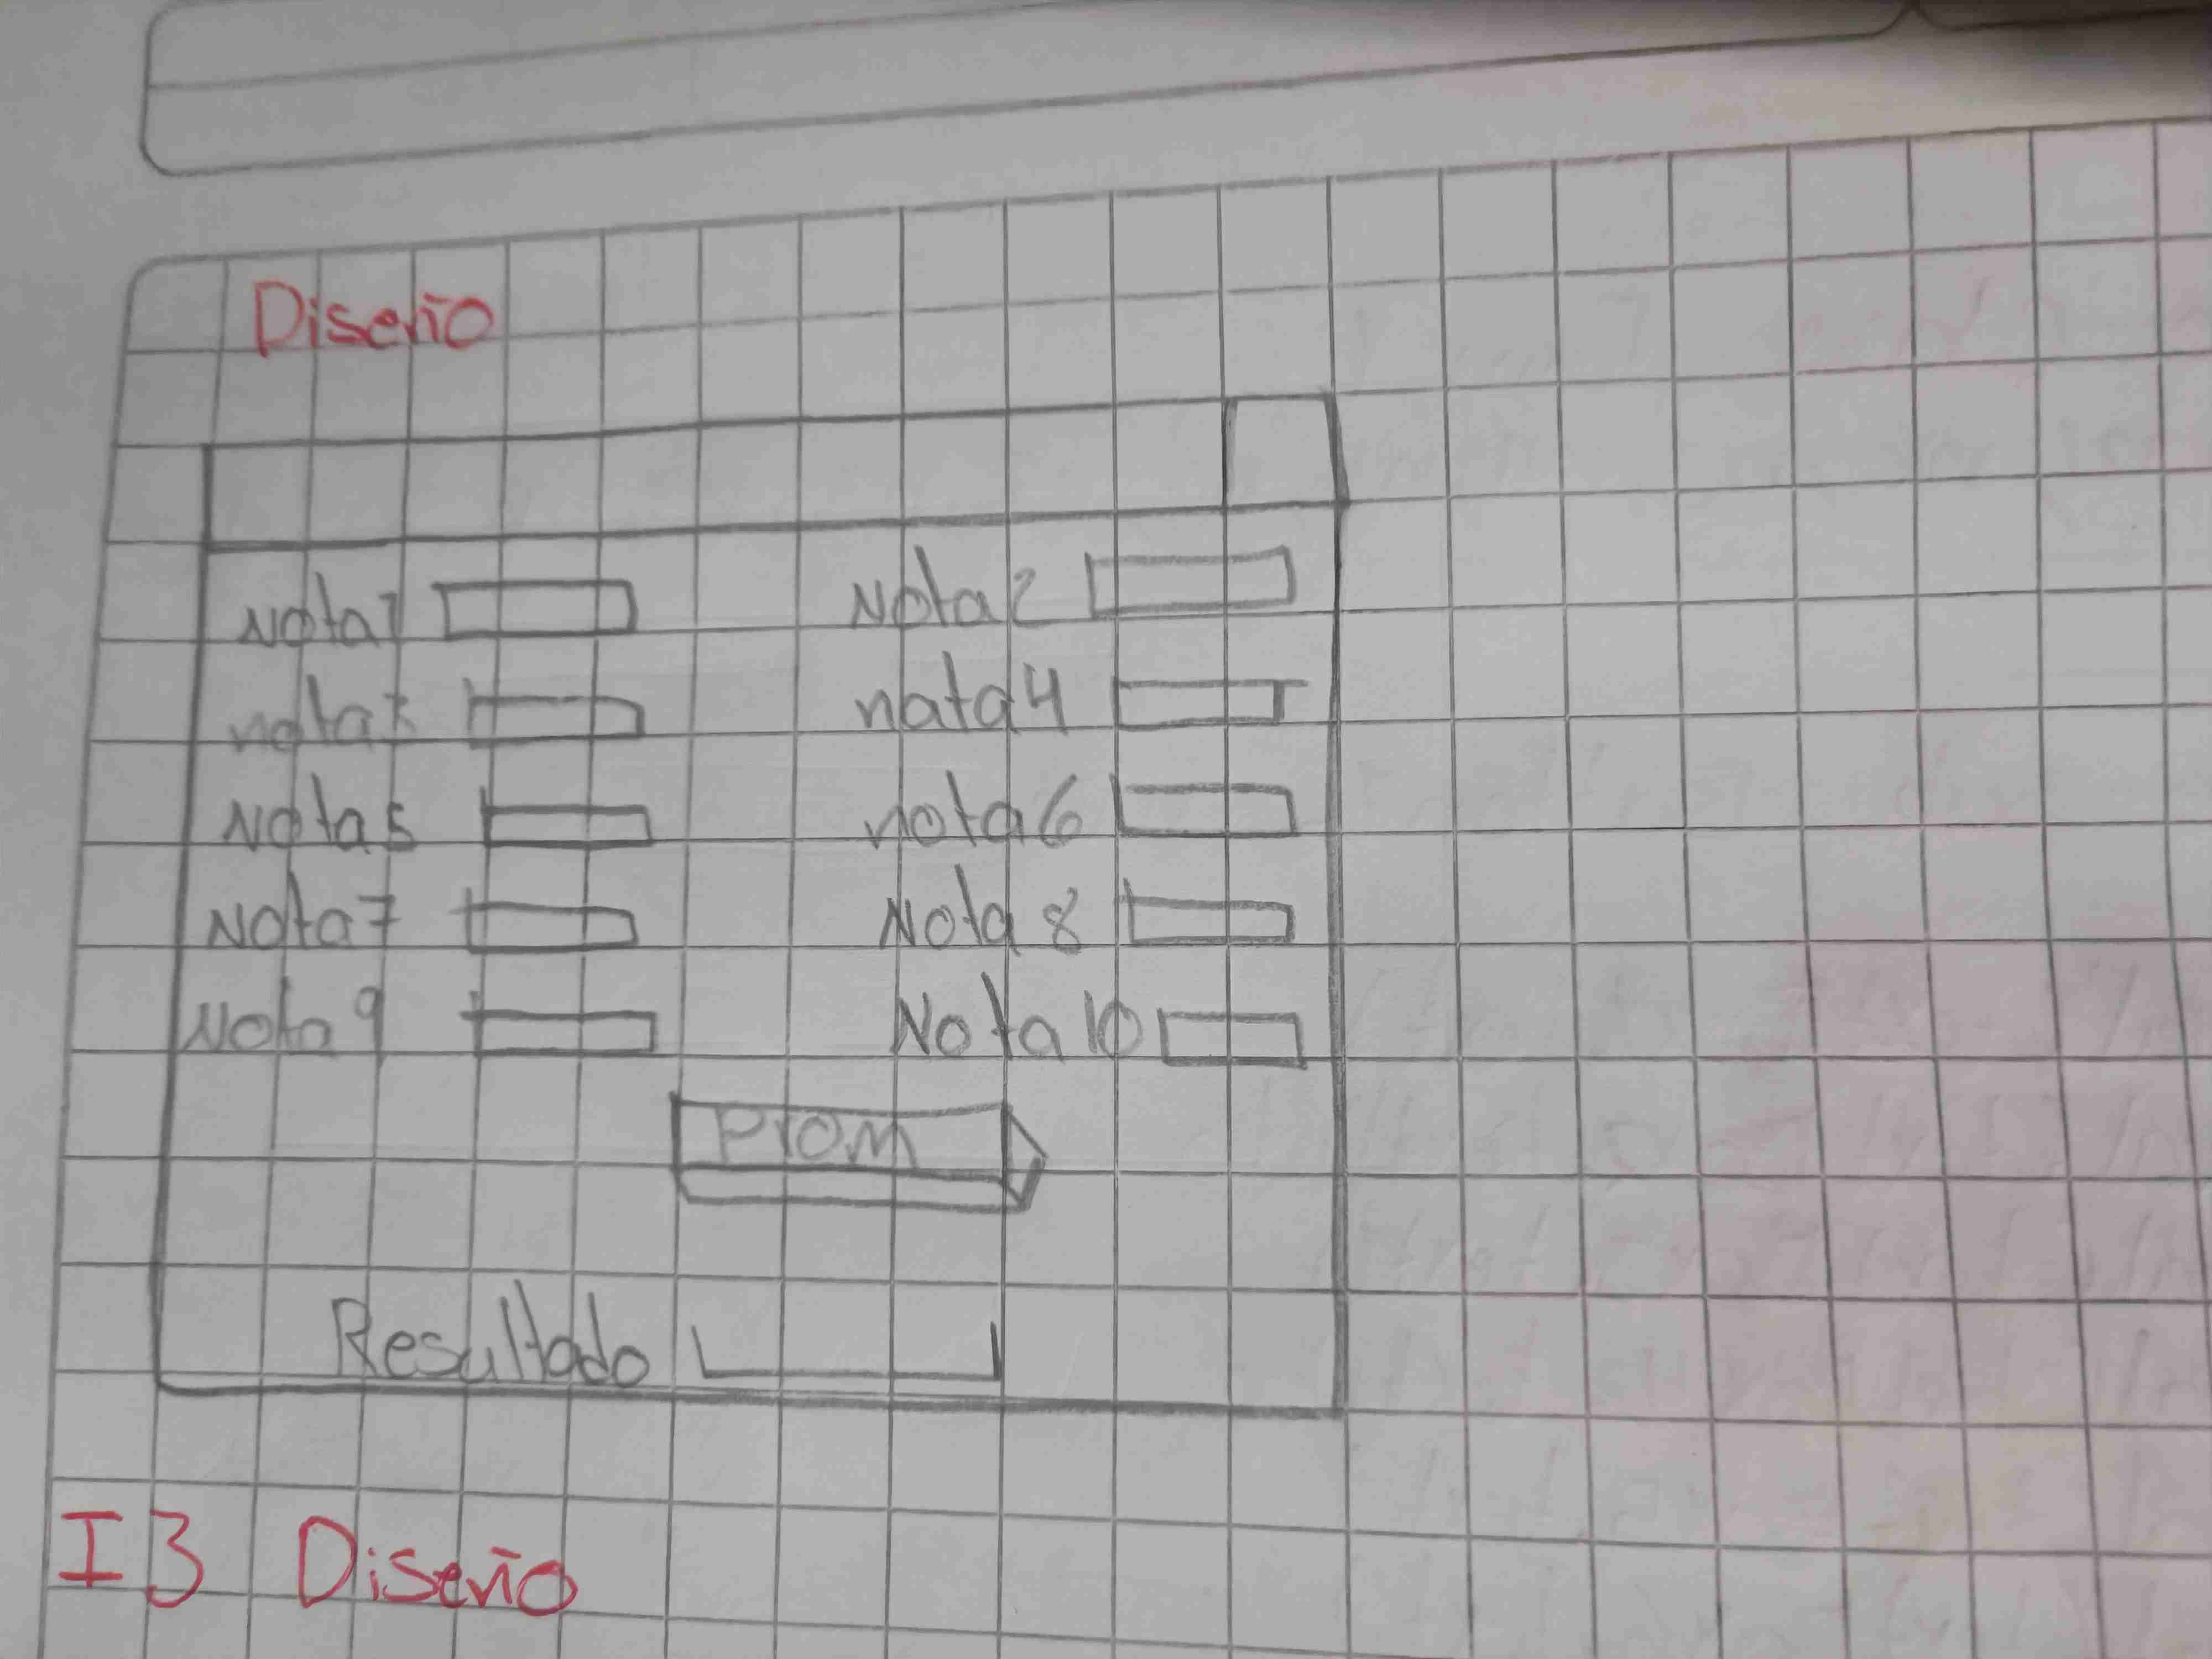 Diseño
Nota1 Nota2
nota3 nata4
Nota5 nota6
Nota7 Nota 8
Nota 9 Nota 10
Prom
Resultado
I3 Diseño